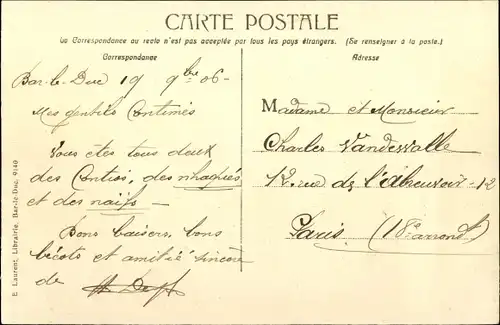 CARTE POSTALE
La Correspondance au recto n'est pas acceptée par tous les pays étrangers. (Se renseigner à la poste.)
Correspondance
Adresse
Bar-le-Duc 19 9bre 06-
Mes gentils
Vous êtes tous deux
des des
et des naïfs -
Bons baisers, bons
bécots et amitié sincère
de
Madame et Monsieur
Charles Vandewalle
12, rue de l'Abreuvoir - 12
Paris (18e arrondt)
E. Laurent, Librairie, Bar-le-Duc, 9140